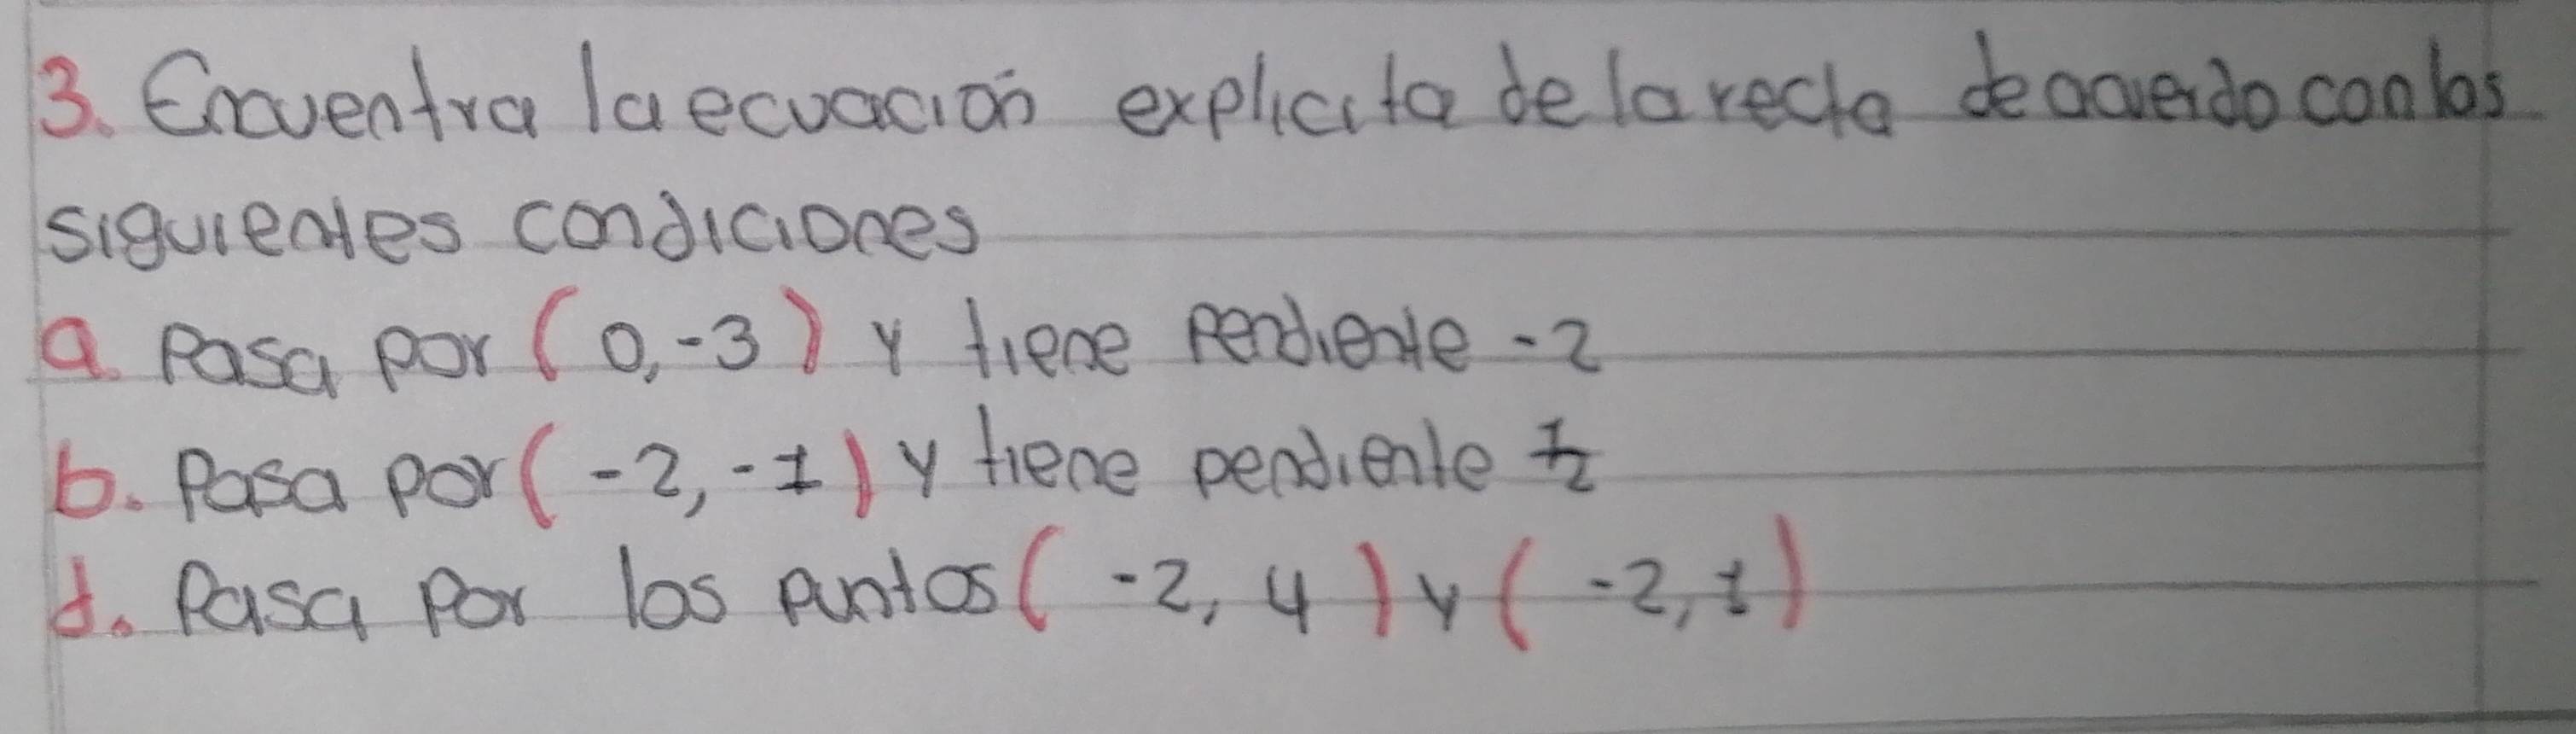 3. Encuentra la ecuación explicita de la recta de acuerdo con los
siguientes condiciones
a. Pasa por (0,-3) y tiene Pendiente -2
b. Pasa por (-2,-1) y tiene pendiente 1/2
d. Pasa Por los puntos (-2, 4) y (-2,1)